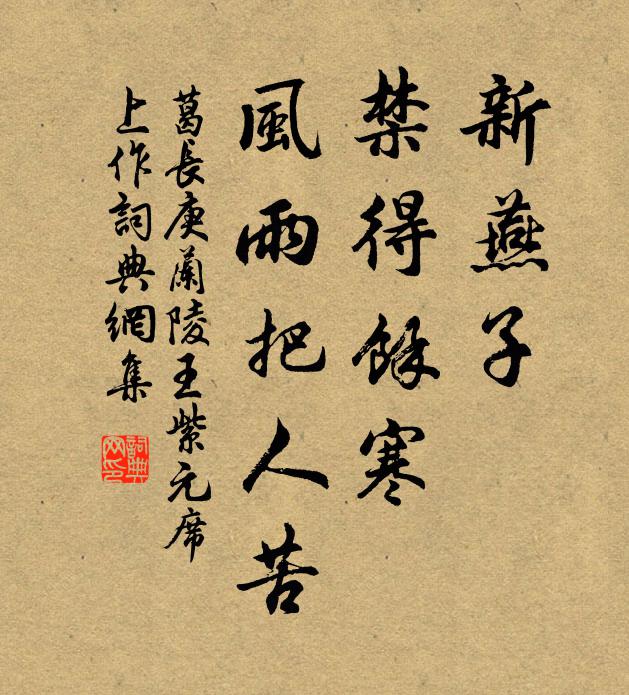 新燕子
禁得餘寒
風雨把人苦
葛長庚蘭陵王紫元席
上作詞典網集
詞典
网印